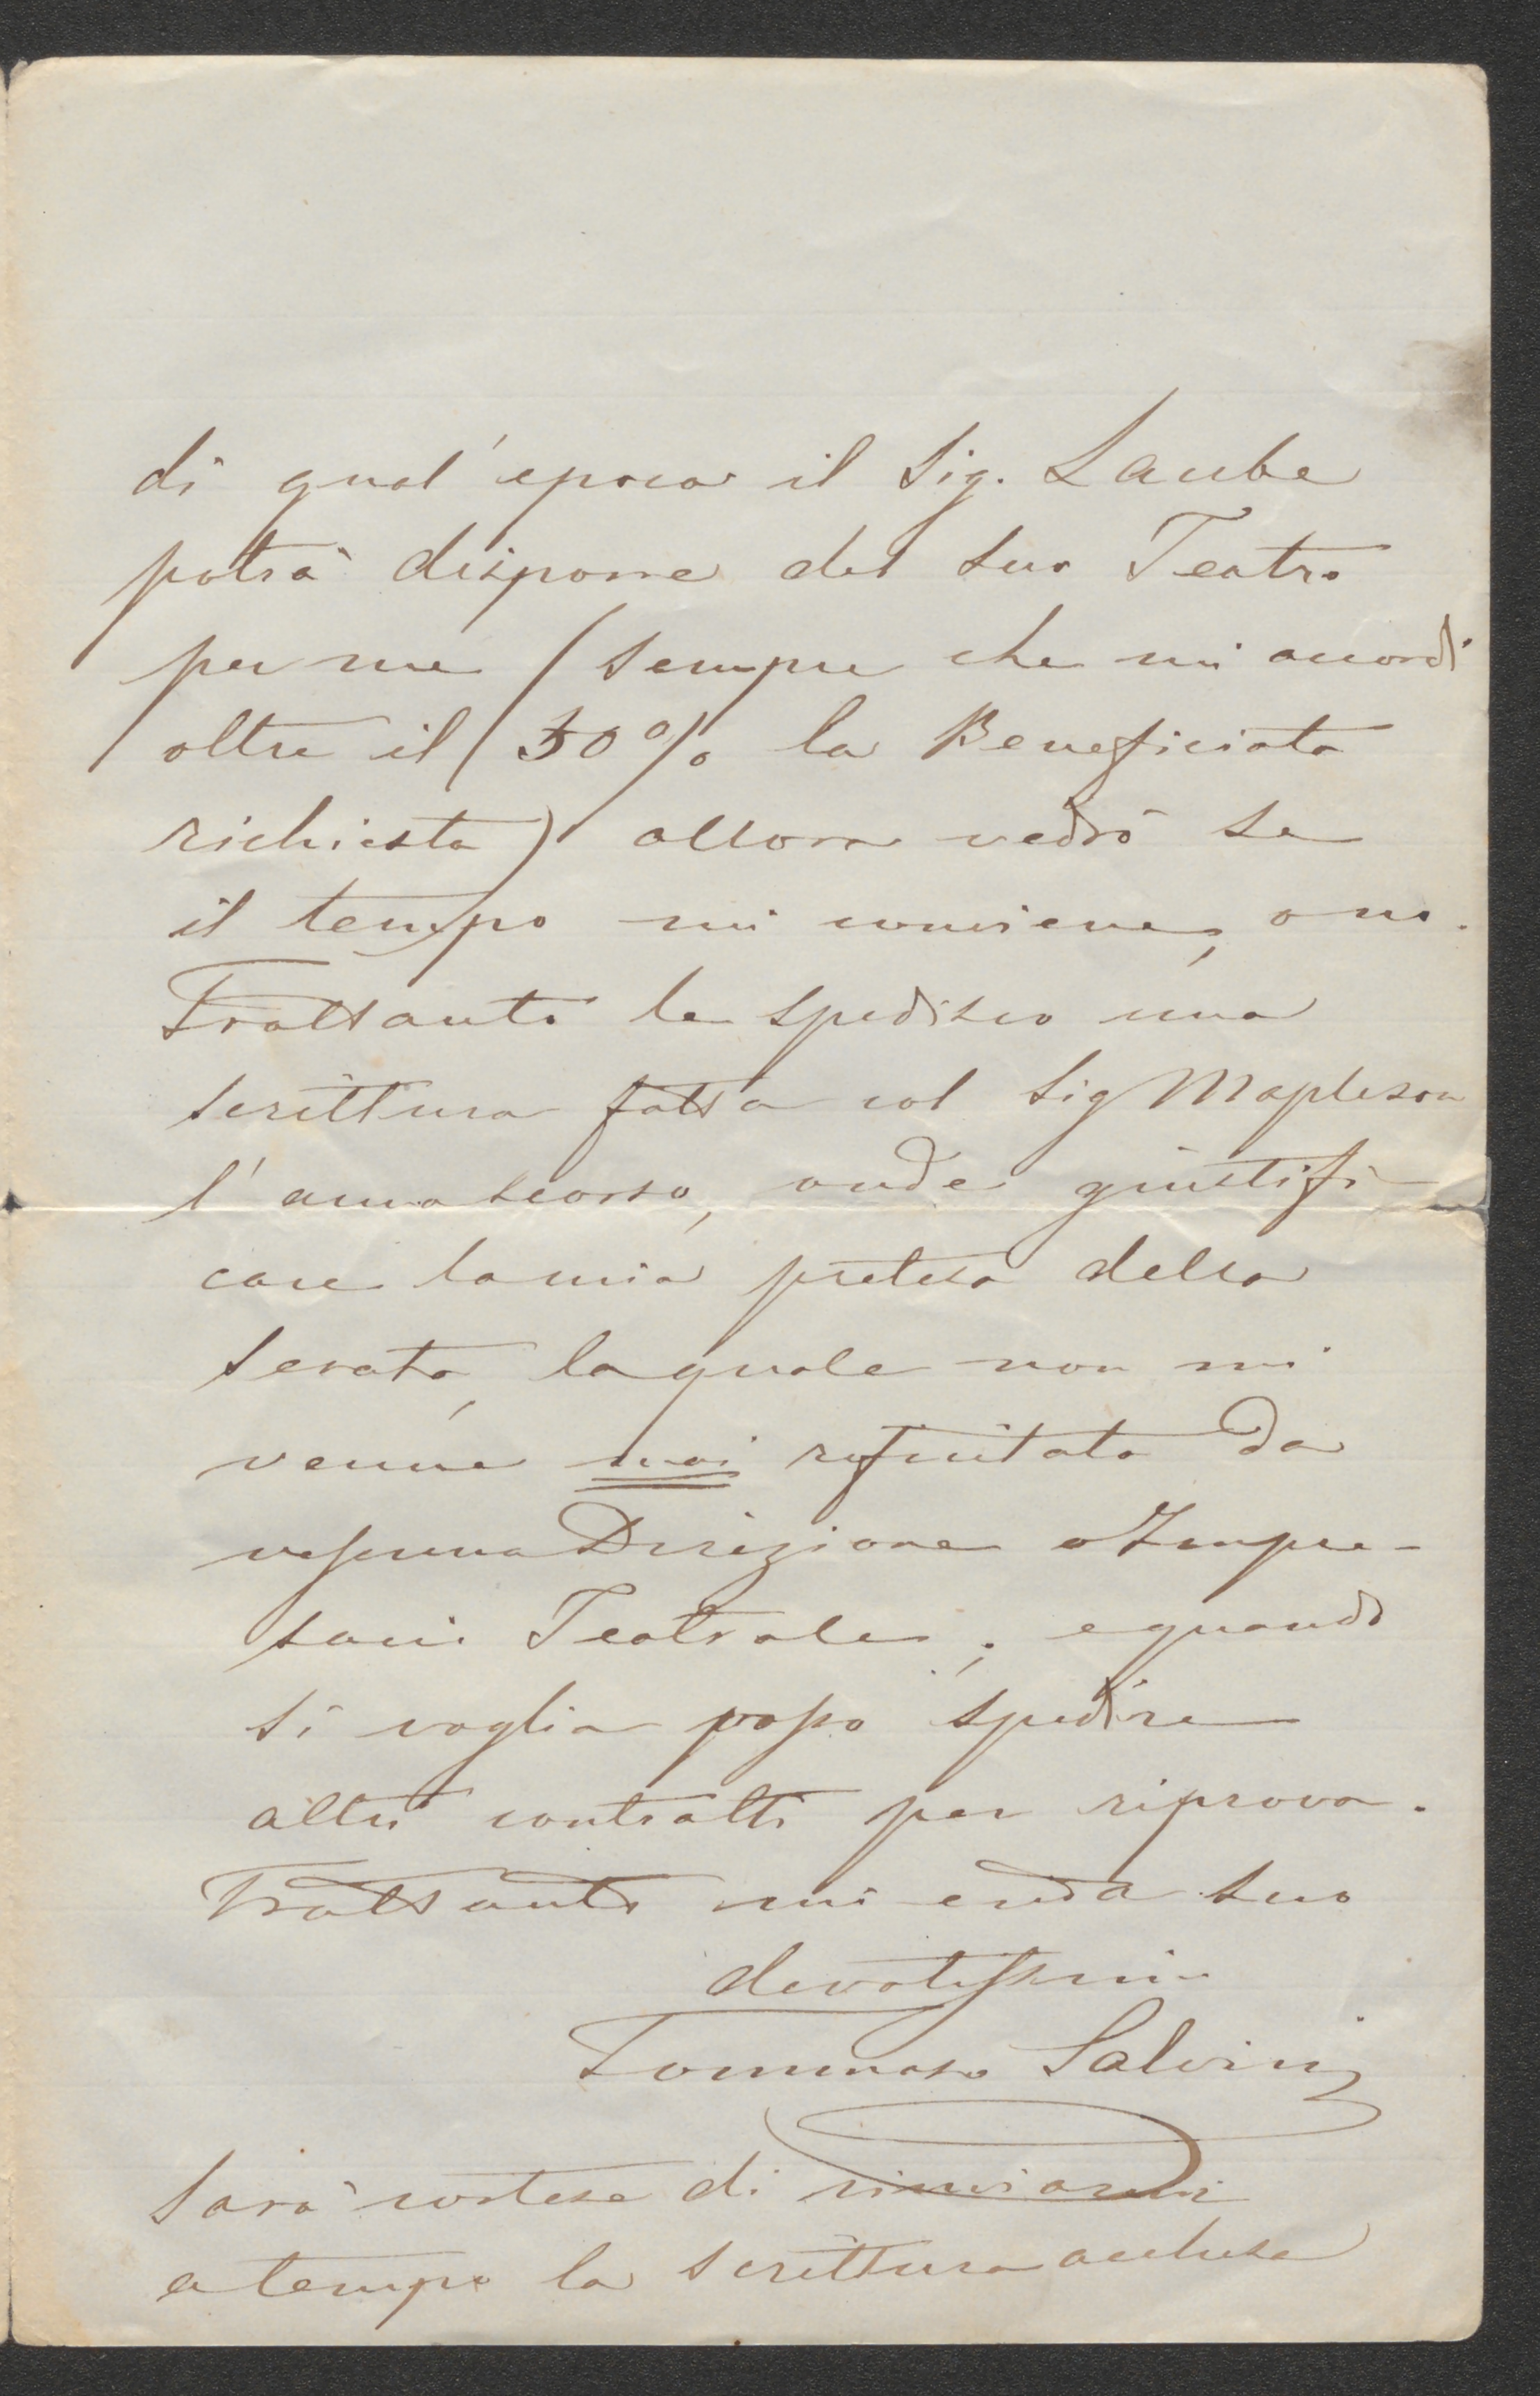 di qual'epoca il Sig. Laube
potrà disporre del suo Teatro
per me (sempre che mi accordi
oltre il 50% la Beneficiata
richiesta) allora vedrò se
il tempo mi conviene, o no.
Frattanto le spedisco una
scrittura fatta col Sig Mapleson
l'anno scorso, onde giustifi-
care la mia pretesa della
serata, la quale non mi
venne mai rifiutata da
nessuna Direzione o Impre-
sario Teatrale; e quando
si voglia posso spedire
altri contratti per riprova.
Frattanto mi creda suo
devotissimo
Tommaso Salvini
Sarà cortese di rinviarmi
a tempo la scrittura acclusa